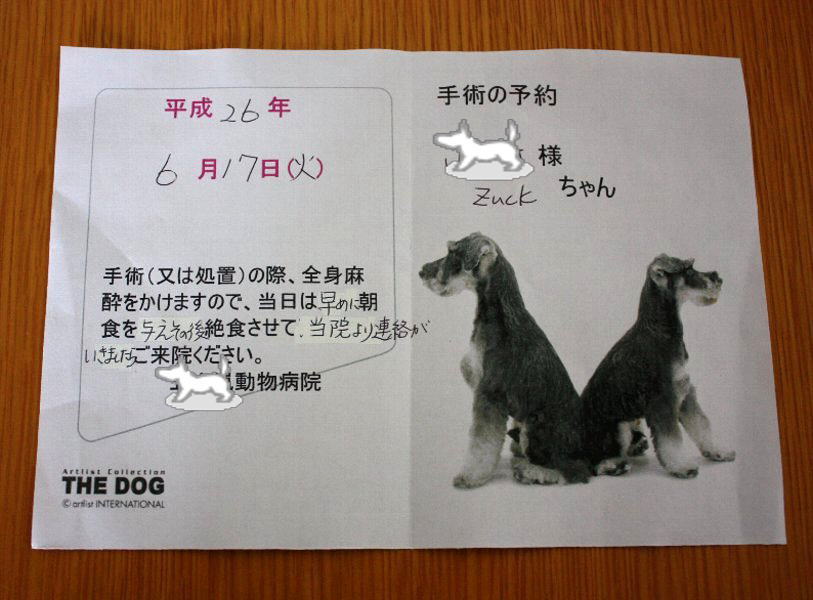 平成26年
6月17日(火)
手術(又は処置)の際、全身麻
酔をかけますので、当日は早めに朝
食を与えその後絶食させて、当院より連絡が
いきましたらご来院ください。
動物病院
Artlist Collection
THE DOG
© artlist INTERNATIONAL
手術の予約
様
Zuck ちゃん